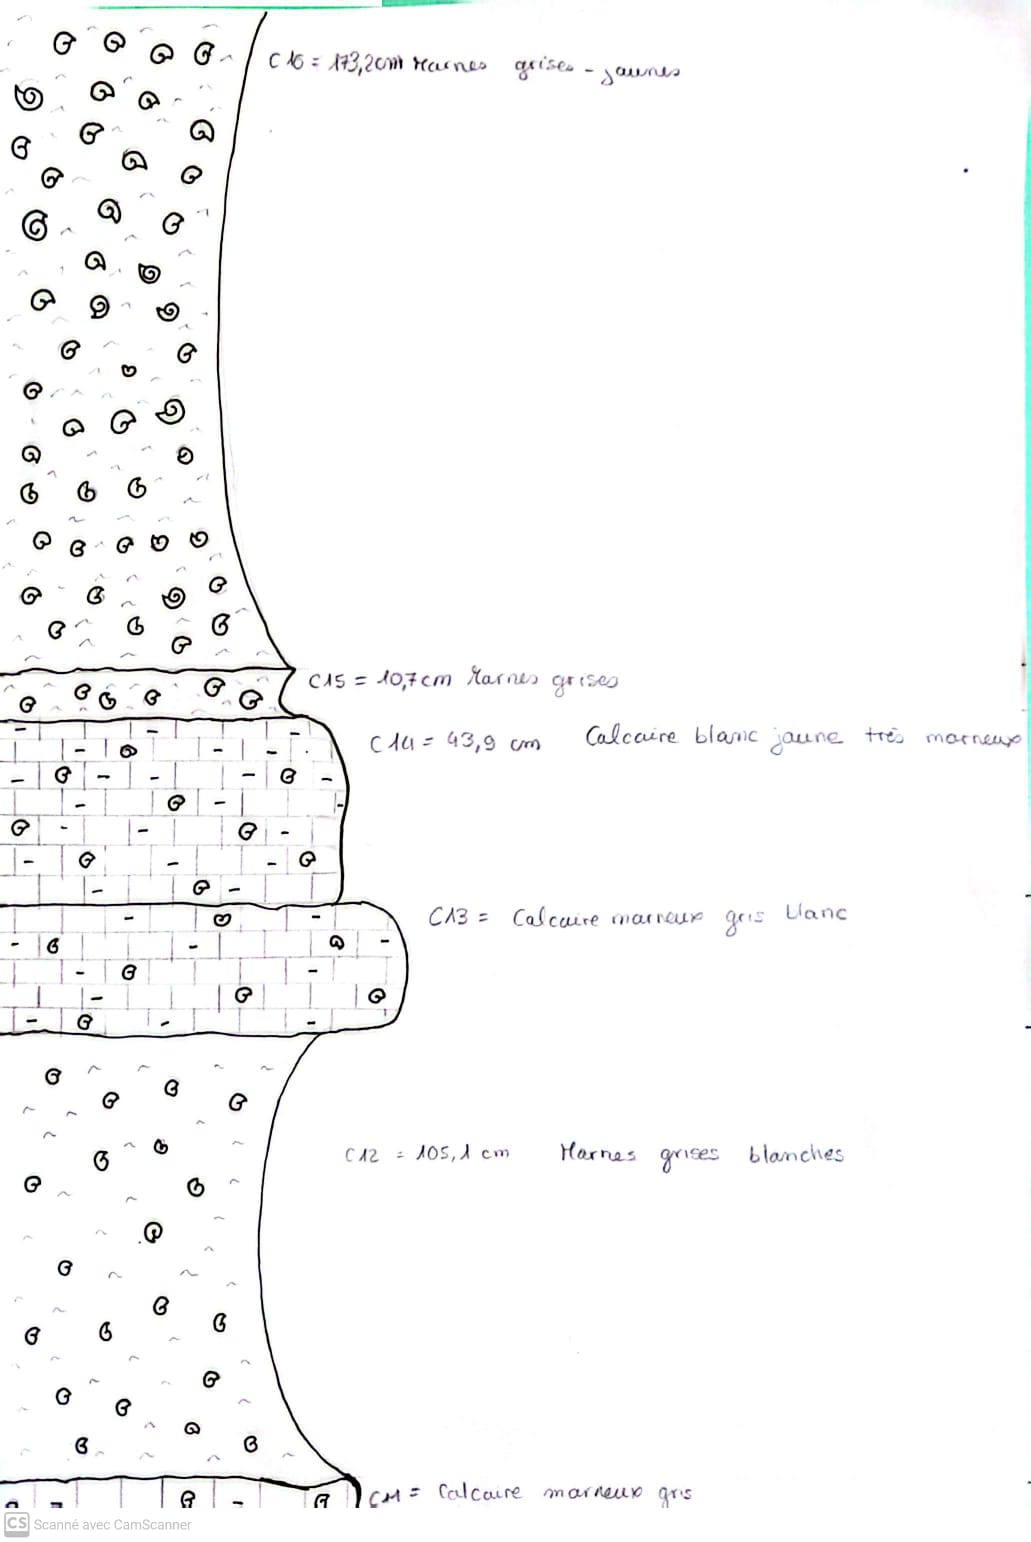 C16 = 173,2cm Marnes grises - jaunes
C15 = 10,7cm Marnes grises
C14 = 43,9 cm Calcaire blanc jaune très marneux
C13 = Calcaire marneux gris blanc
C12 = 105,1 cm Marnes grises blanches
C11 = Calcaire marneux gris
CS Scanné avec CamScanner